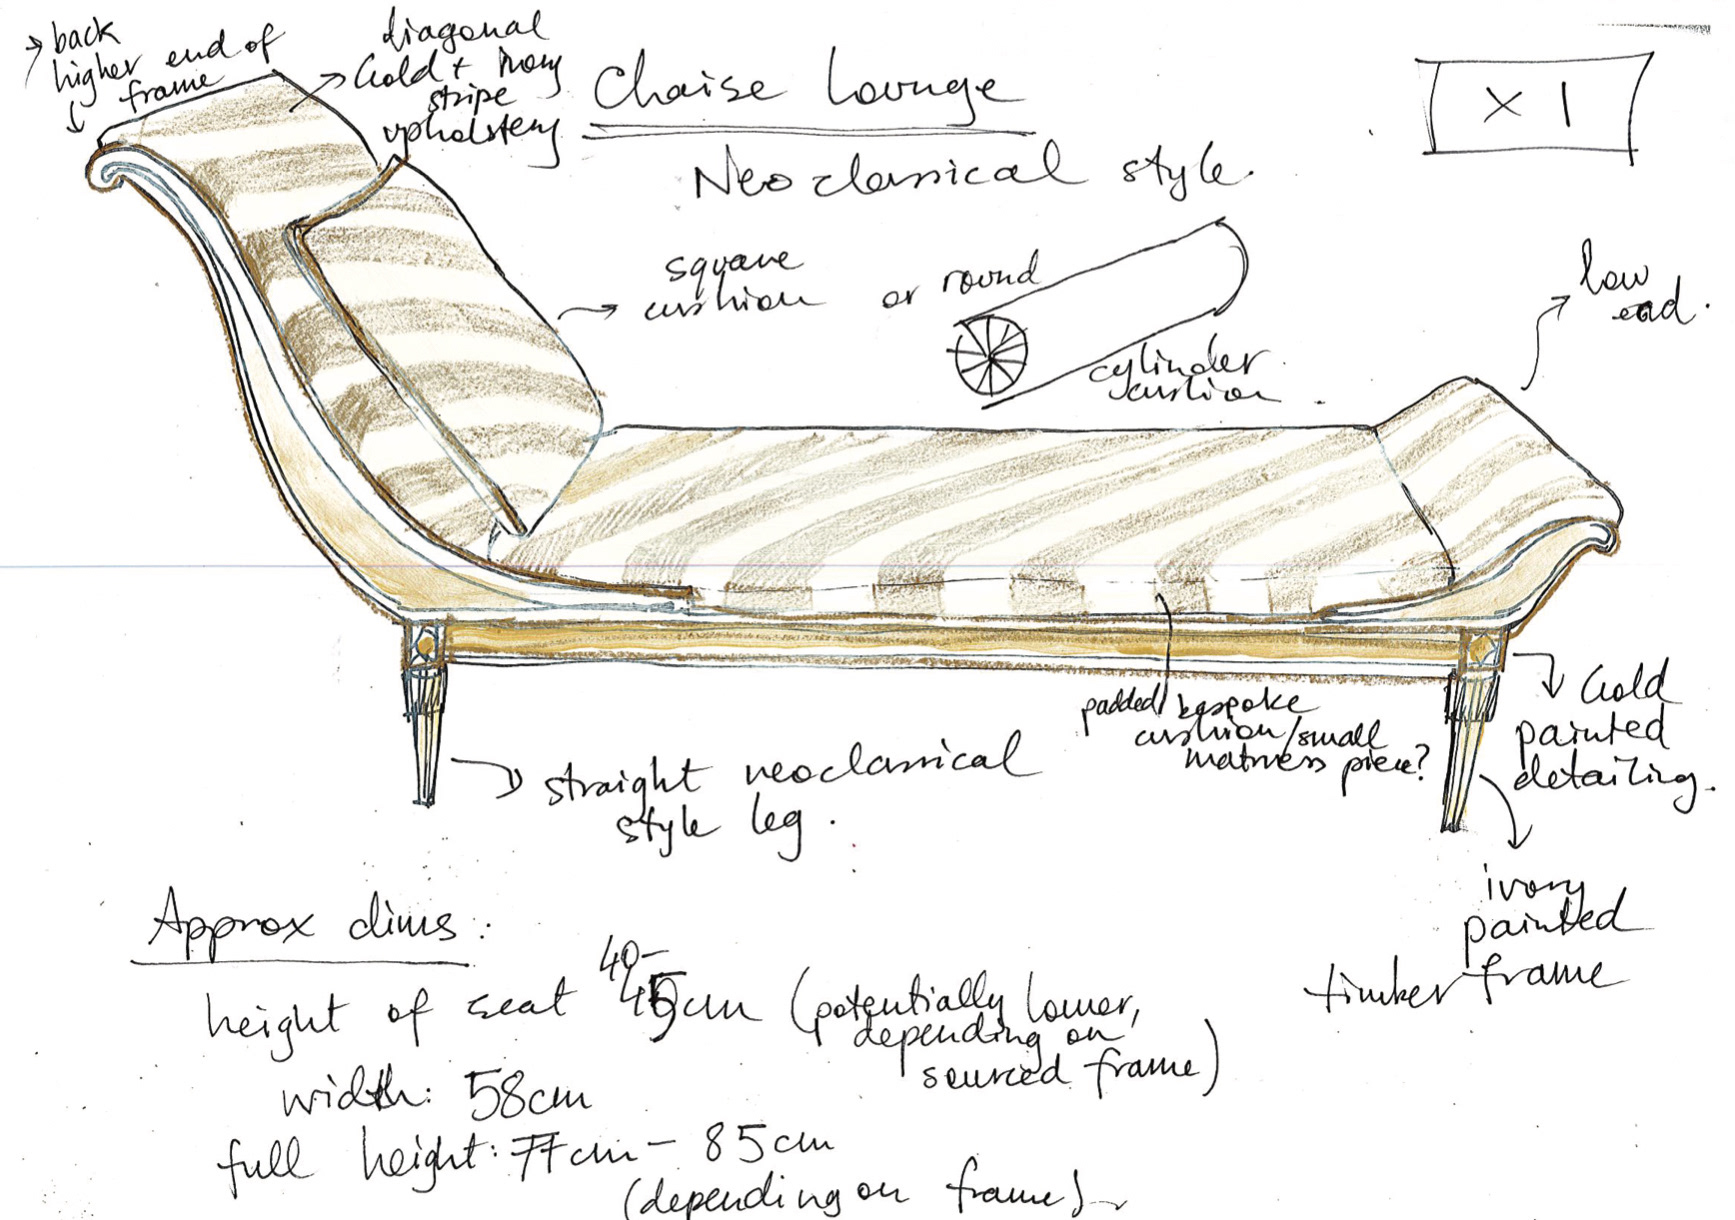 → back
higher end of
frame
diagonal
Gold + Ivory
stripe
upholstery
Chaise Lounge
Neoclassical style.
x 1
square
cushion
or round
cylinder
cushion.
low
end.
padded/bespoke
cushion/small
matress piece?
Gold
painted
detailing.
straight neoclassical
style leg.
ivory
painted
timber frame
Approx dims:
height of seat 40-45cm (potentially lower,
depending on
sourced frame)
width: 58cm
full height: 77cm - 85cm
(depending on frame)